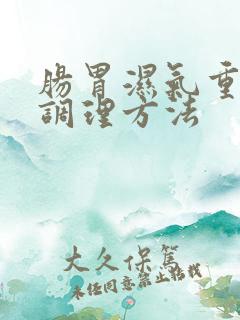 腸胃濕氣重
調理方法
大久保篤
未經同意禁止轉載